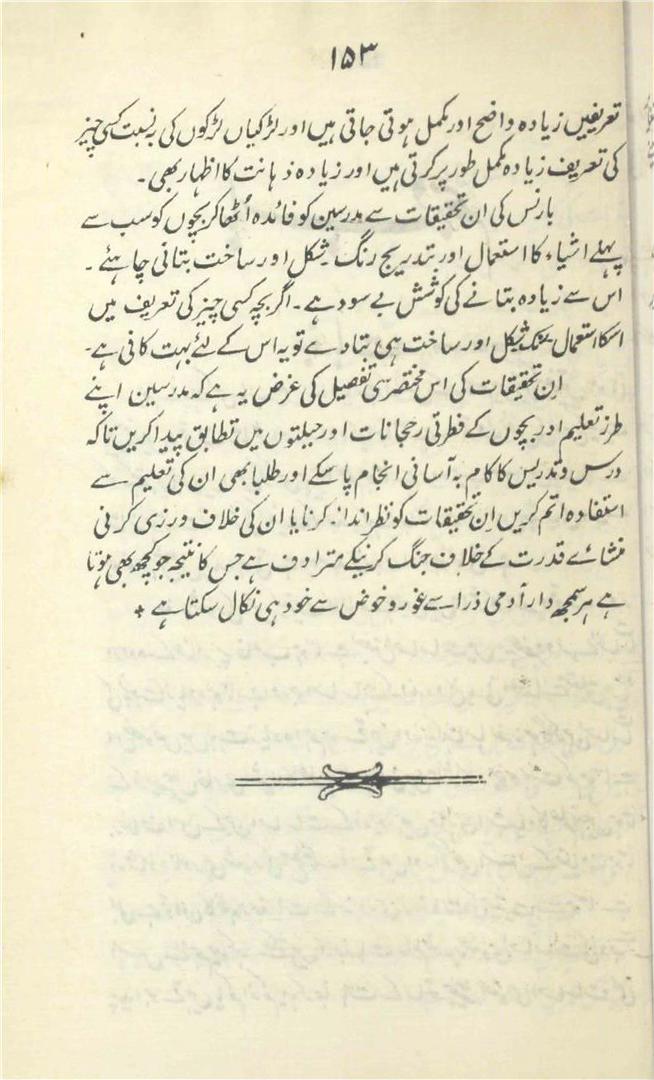 ۱۵۳
تعریفیں زیادہ واضح اور مکمل ہوتی جاتی ہیں اور لڑکیاں لڑکوں کی بہ نسبت کسی چیز
کی تعریف زیادہ مکمل طور پر کرتی ہیں اور زیادہ ذہانت کا اظہار بھی ۔
بارنس کی ان تحقیقات سے مدرسین کو فائدہ اُٹھا کر بچوں کو سب سے
پہلے اشیاء کا استعمال اور بتدریج رنگ ۔ شکل اور ساخت بتانی چاہئے ۔
اس سے زیادہ بتانے کی کوشش بے سود ہے ۔ اگر بچہ کسی چیز کی تعریف میں
اسکا استعمال رنگ شکل اور ساخت ہی بتادے تو یہ اس کے لئے بہت کافی ہے ۔
اِن تحقیقات کی اس مختصر سی تفصیل کی غرض یہ ہے کہ مدرسین اپنے
طرز تعلیم اور بچوں کے فطرتی رحجانات اور جبلتوں میں تطابق پیدا کریں تاکہ
درس و تدریس کا کام بہ آسانی انجام پا سکے اور طلبا بھی ان کی تعلیم سے
استفادہ اتم کریں اِن تحقیقات کو نظر انداز کرنا یا ان کی خلاف ورزی کرنی
منشائے قدرت کے خلاف جنگ کرنیکے مترادف ہے جس کا نتیجہ جو کچھ بھی ہوتا
ہے ہر سمجھ دار آدمی ذرا سے غور و خوض سے خود ہی نکال سکتا ہے +